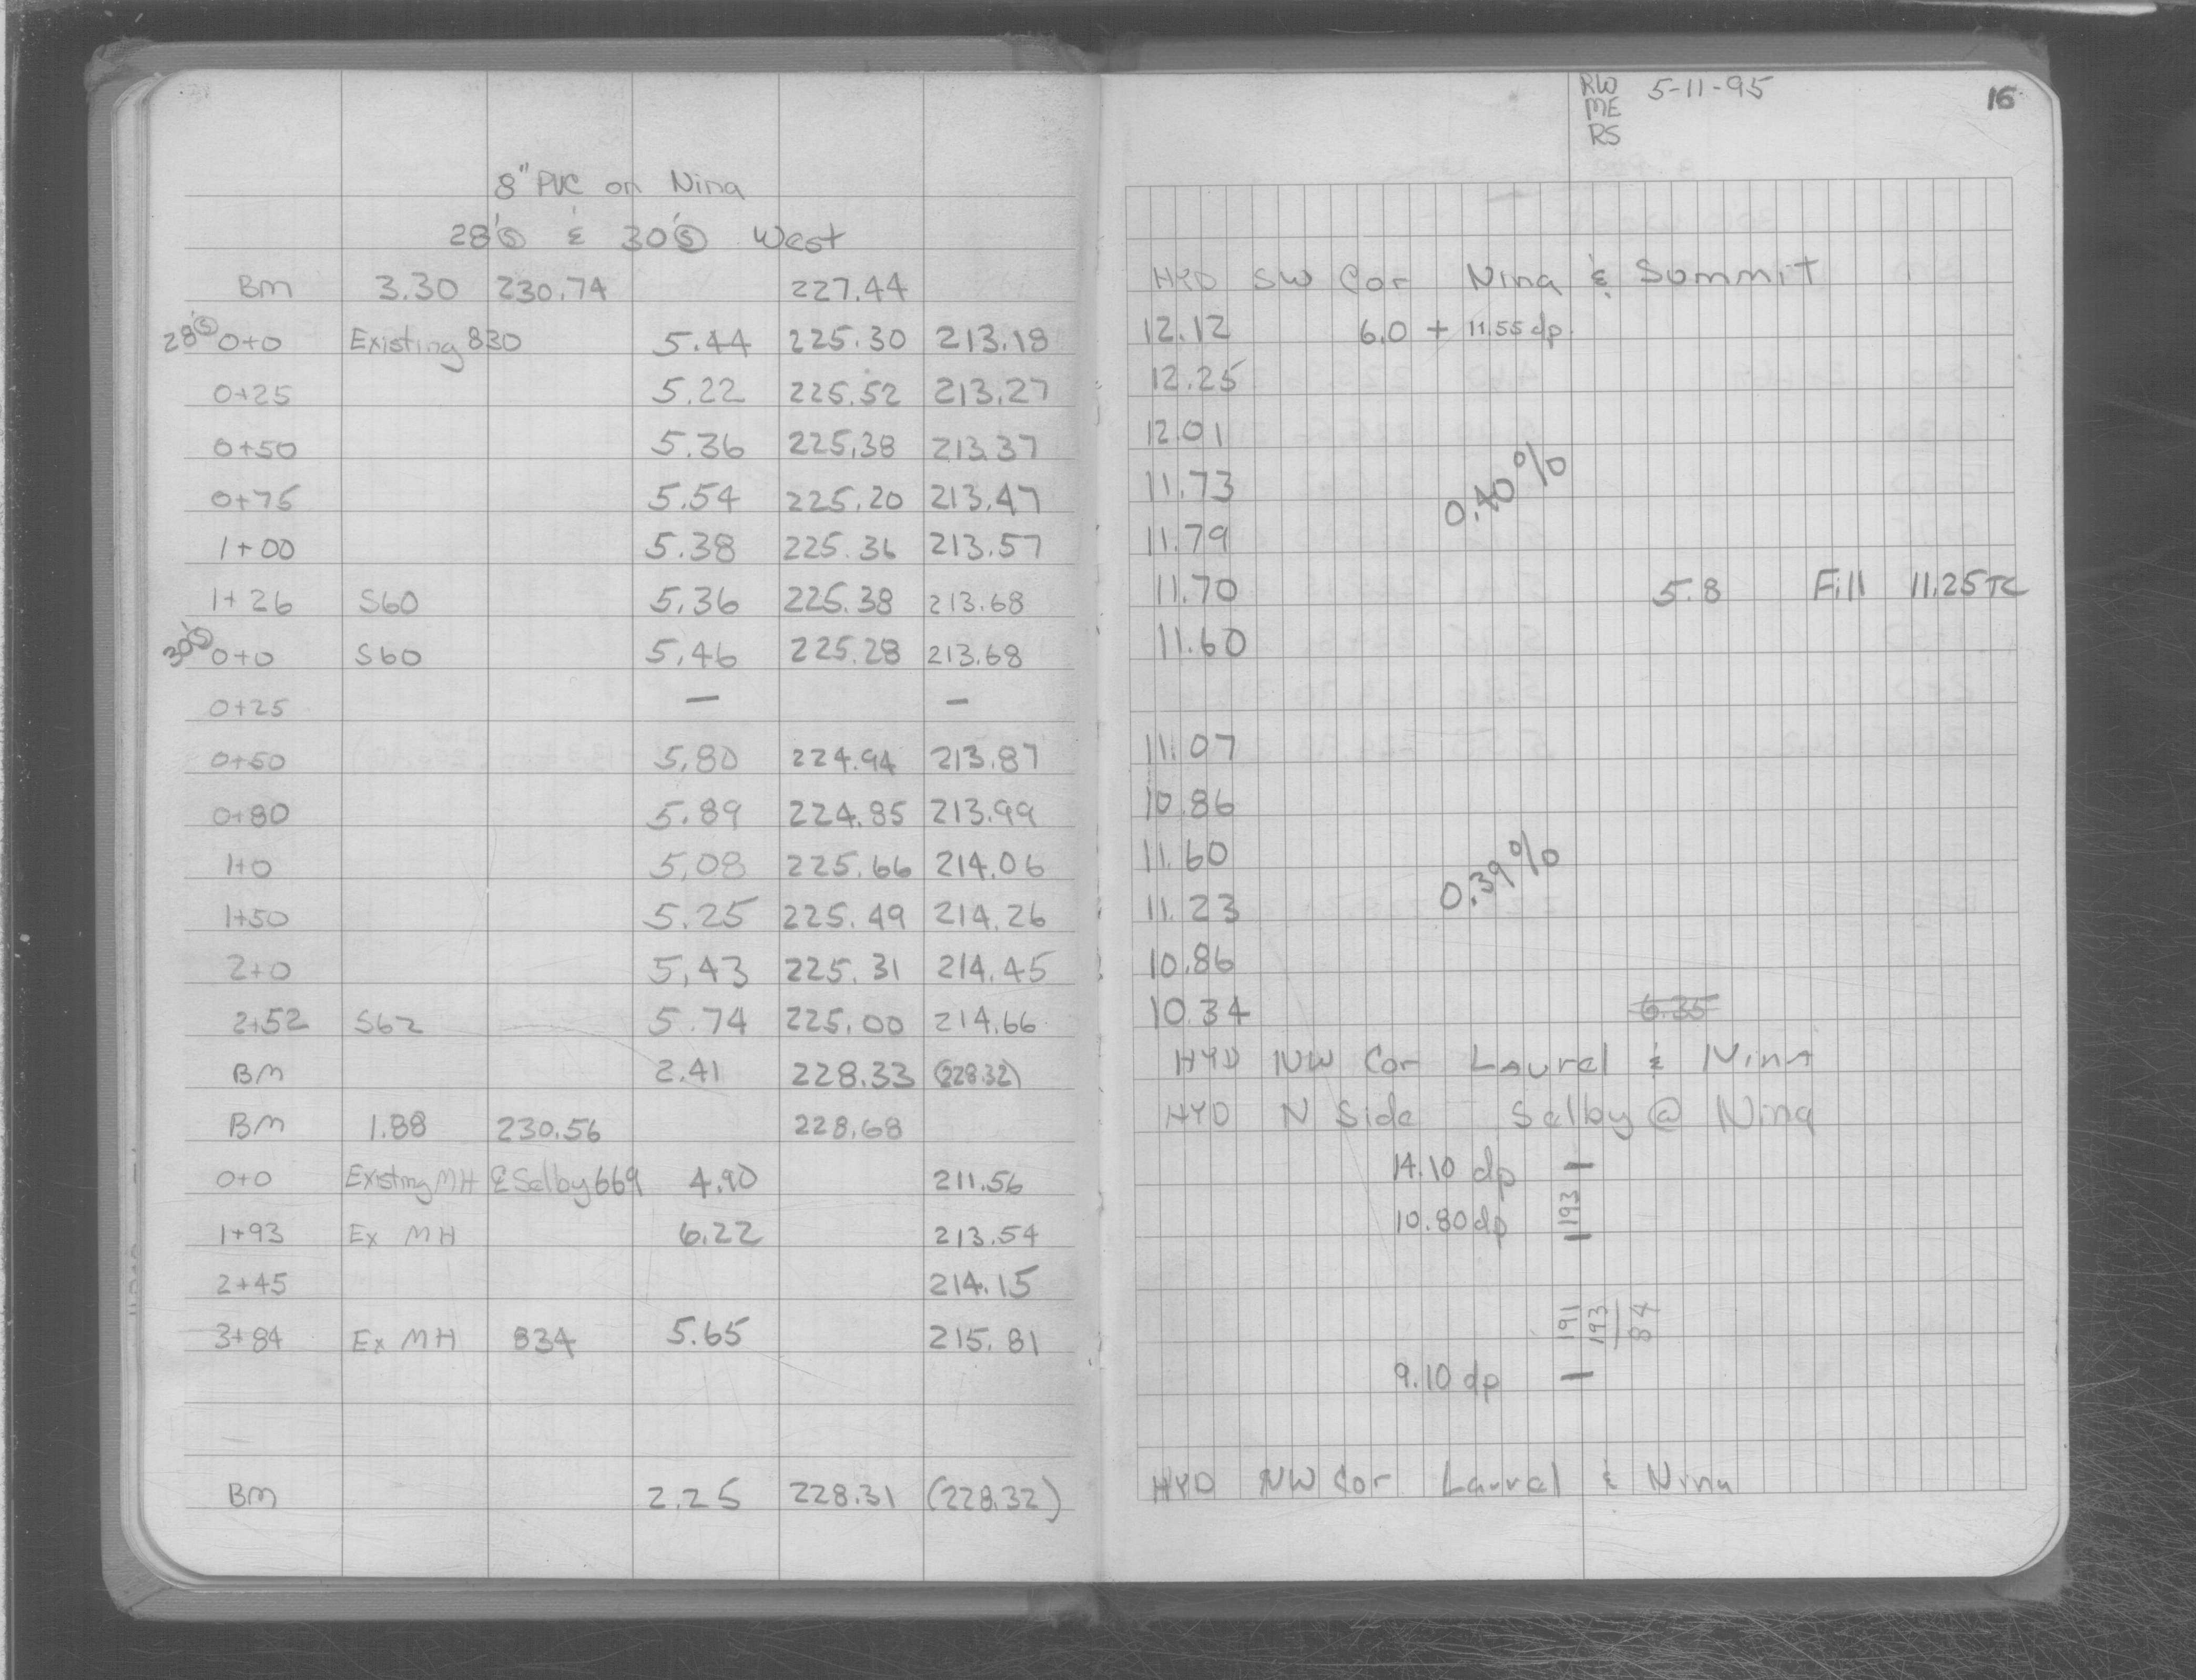 8" PVC on Nina
28'Ⓢ & 30'Ⓢ West
BM 3.30 230.74 227.44
28'Ⓢ 0+0 Existing 830 5.44 225.30 213.18
0+25 5.22 225.52 213.27
0+50 5.36 225.38 213.37
0+75 5.54 225.20 213.47
1+00 5.38 225.36 213.57
1+26 S60 5.36 225.38 213.68
30'Ⓢ 0+0 S60 5.46 225.28 213.68
0+25 — —
0+50 5.80 224.94 213.87
0+80 5.89 224.85 213.99
1+0 5.08 225.66 214.06
1+50 5.25 225.49 214.26
2+0 5.43 225.31 214.45
2+52 S62 5.74 225.00 214.66
BM 2.41 228.33 (228.32)
BM 1.88 230.56 228.68
0+0 Existing MH & Selby 669 4.90 211.56
1+93 Ex MH 6.22 213.54
2+45 214.15
3+84 Ex MH 834 5.65 215.81
BM 2.25 228.31 (228.32)
RW 5-11-95 16
ME
RS
HYD SW Cor Nina & Summit
12.12 6.0 + 11.55 dp.
12.25
12.01
11.73 0.40%
11.79
11.70 5.8 Fill 11.25 TC
11.60
11.07
10.86
11.60 0.39%
11.23
10.86
10.34 6.35
HYD NW Cor Laurel & Nina
HYD N Side Selby @ Nina
14.10 dp
193
10.80 dp
191
193
84
9.10 dp
HYD NW Cor Laurel & Nina